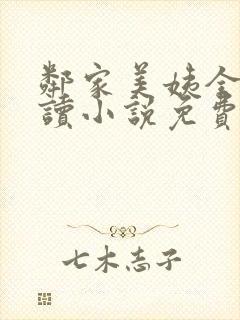 鄰家美姨全
讀小說免費
七木志子